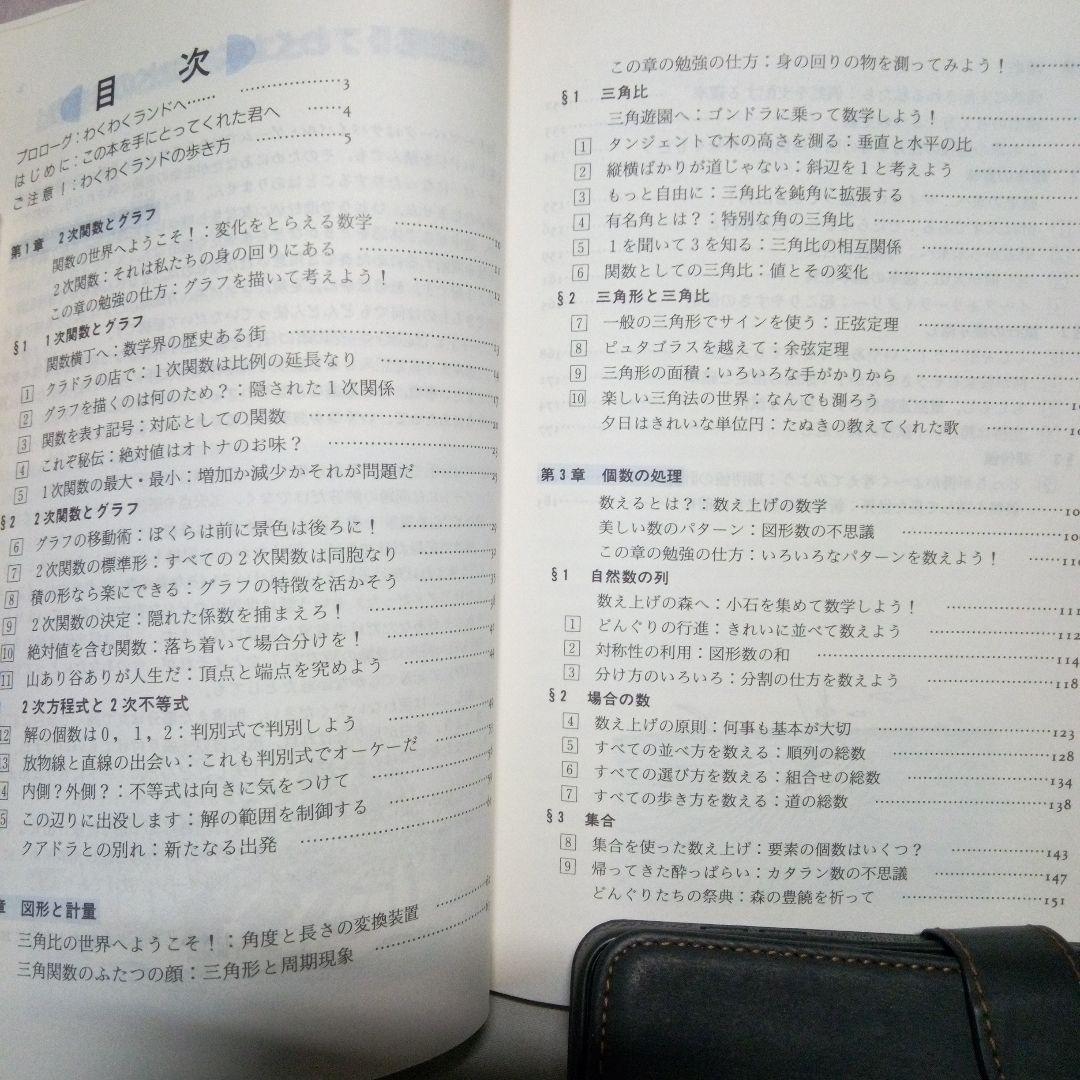 目 次
プロローグ：わくわくランドへ…… ……3
はじめに：この本を手にとってくれた君へ ……4
ご注意！：わくわくランドの歩き方 ……5
第1章 2次関数とグラフ
関数の世界へようこそ！：変化をとらえる数学
2次関数：それは私たちの身の回りにある
この章の勉強の仕方：グラフを描いて考えよう！ ……12
§1 1次関数とグラフ
関数横丁へ：数学界の歴史ある街 ……13
1 クラドラの店で：1次関数は比例の延長なり ……14
2 グラフを描くのは何のため？：隠された1次関係 ……17
3 関数を表す記号：対応としての関数
4 これぞ秘伝：絶対値はオトナのお味？ ……23
5 1次関数の最大・最小：増加か減少かそれが問題だ ……25
§2 2次関数とグラフ
6 グラフの移動術：ぼくらは前に景色は後ろに！ ……29
7 2次関数の標準形：すべての2次関数は同胞なり
8 積の形なら楽にできる：グラフの特徴を活かそう
9 2次関数の決定：隠れた係数を捕まえろ！
10 絶対値を含む関数：落ち着いて場合分けを！
11 山あり谷ありが人生だ：頂点と端点を究めよう
2次方程式と2次不等式
12 解の個数は0，1，2：判別式で判別しよう
13 放物線と直線の出会い：これも判別式でオーケーだ
4 内側？外側？：不等式は向きに気をつけて
5 この辺りに出没します：解の範囲を制御する
クアドラとの別れ：新たなる出発
章 図形と計量
三角比の世界へようこそ！：角度と長さの変換装置
三角関数のふたつの顔：三角形と周期現象
この章の勉強の仕方：身の回りの物を測ってみよう！
§1 三角比
三角遊園へ：ゴンドラに乗って数学しよう！
1 タンジェントで木の高さを測る：垂直と水平の比
2 縦横ばかりが道じゃない：斜辺を1と考えよう
3 もっと自由に：三角比を鈍角に拡張する
4 有名角とは？：特別な角の三角比
5 1を聞いて3を知る：三角比の相互関係
6 関数としての三角比：値とその変化
§2 三角形と三角比
7 一般の三角形でサインを使う：正弦定理
8 ピュタゴラスを越えて：余弦定理
9 三角形の面積：いろいろな手がかりから
10 楽しい三角法の世界：なんでも測ろう
夕日はきれいな単位円：たぬきの教えてくれた歌
第3章 個数の処理
数えるとは？：数え上げの数学
美しい数のパターン：図形数の不思議
この章の勉強の仕方：いろいろなパターンを数えよう！ ……110
§1 自然数の列
数え上げの森へ：小石を集めて数学しよう！ ……111
1 どんぐりの行進：きれいに並べて数えよう ……112
2 対称性の利用：図形数の和 ……114
3 分け方のいろいろ：分割の仕方を数えよう ……118
§2 場合の数
4 数え上げの原則：何事も基本が大切 ……123
5 すべての並べ方を数える：順列の総数 ……128
6 すべての選び方を数える：組合せの総数 ……134
7 すべての歩き方を数える：道の総数 ……138
§3 集合
8 集合を使った数え上げ：要素の個数はいくつ？ ……143
9 帰ってきた酔っぱらい：カタラン数の不思議 ……147
どんぐりたちの祭典：森の豊饒を祈って ……151